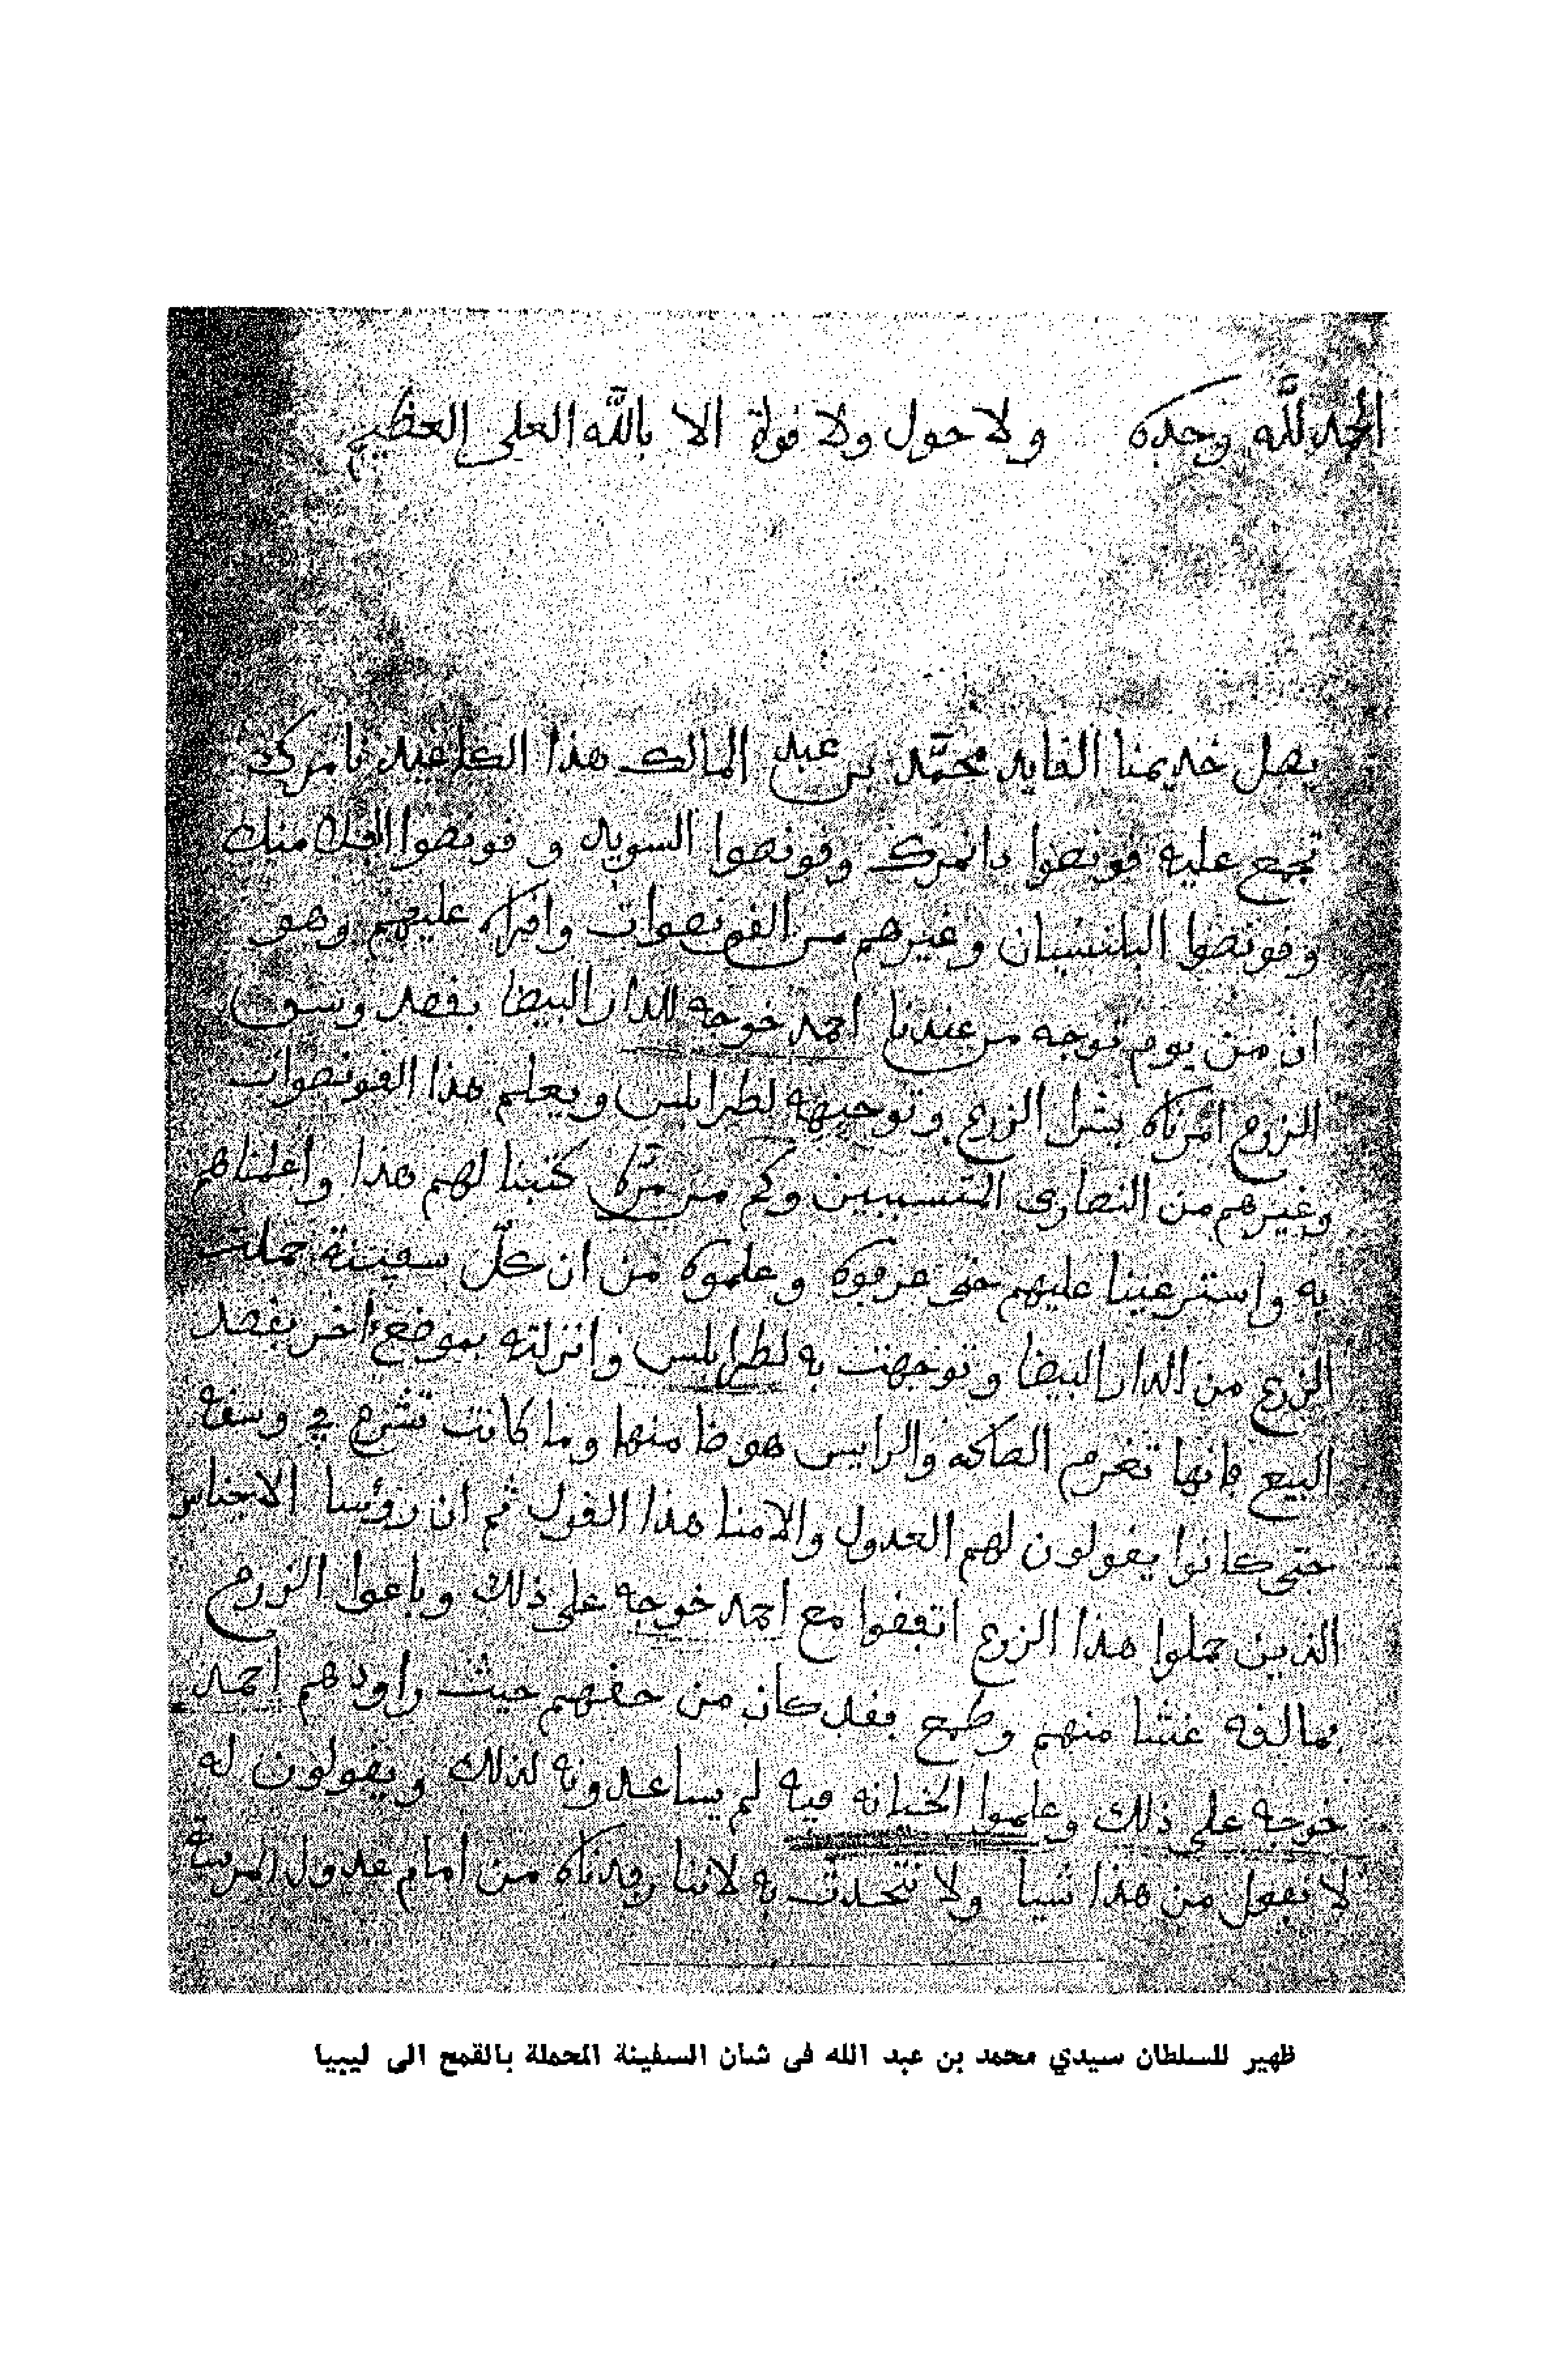 الحمد لله وحده ولا حول ولا قوة الا بالله العلي العظيم
يصل خديمنا القايد محمد بن عبد المالك هذا الكاغيد نامرك
تجمع عليه قونصوا دانمرك وقونصوا السويد و قونصوا الفلامنك
وقونصوا البلنسيان وغيرهم من القونصوات واقراه عليهم وهو
ان من يوم توجه من عندنا احمد خوجه للدار البيضا بقصد وسق
الزرع امرناه بشل الزرع وتوجيهه لطرابلس ويعلم هذا القونصوات
وغيرهم من النصارى المتسببين وكم من مرة كتبنا لهم هذا واعلمناهم
به واسترعينا عليهم حتى عرفوه وعلموه من ان كل سفينة حملت
الزرع من الدار البيضا وتوجهت به لطرابلس وانزلته بموضع اخر بقصد
البيع فانها تغرم الصاكه والرايس هو منها وما كانت تشرع في وسقه
حتى كانوا يقولون لهم العدول والامنا هذا القول ثم ان رؤسا الاجناس
الذين حملوا هذا الزرع اتفقوا مع احمد خوجه على ذلك وباعوا الزرع
بمالقه غشا منهم وطمع فقد كان من حقهم حيث راودهم احمد
خوجه على ذلك وعلموا الخيانه فيه لم يساعدونه لذلك ويقولون له
لا نفعل من هذا شيا ولا نتحدث به لاننا رفدناه من امام عدول المرسة
ظهير للسلطان سيدي محمد بن عبد الله فى شان السفينة المحملة بالقمح الى ليبيا